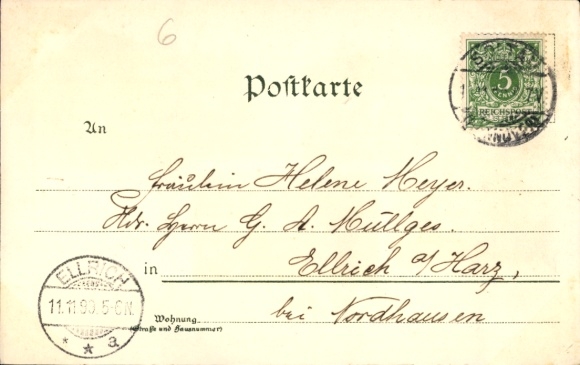 6
5
PFENNIG
REICHSPOST
Postkarte
An
Fräulein Helene Meyer.
Adr. Herrn G. A. Müllges.
in Ellrich a/Harz,
bei Nordhausen
Wohnung
(Straße und Hausnummer)
ELLRICH
11.11.99.5-6N.
* * a